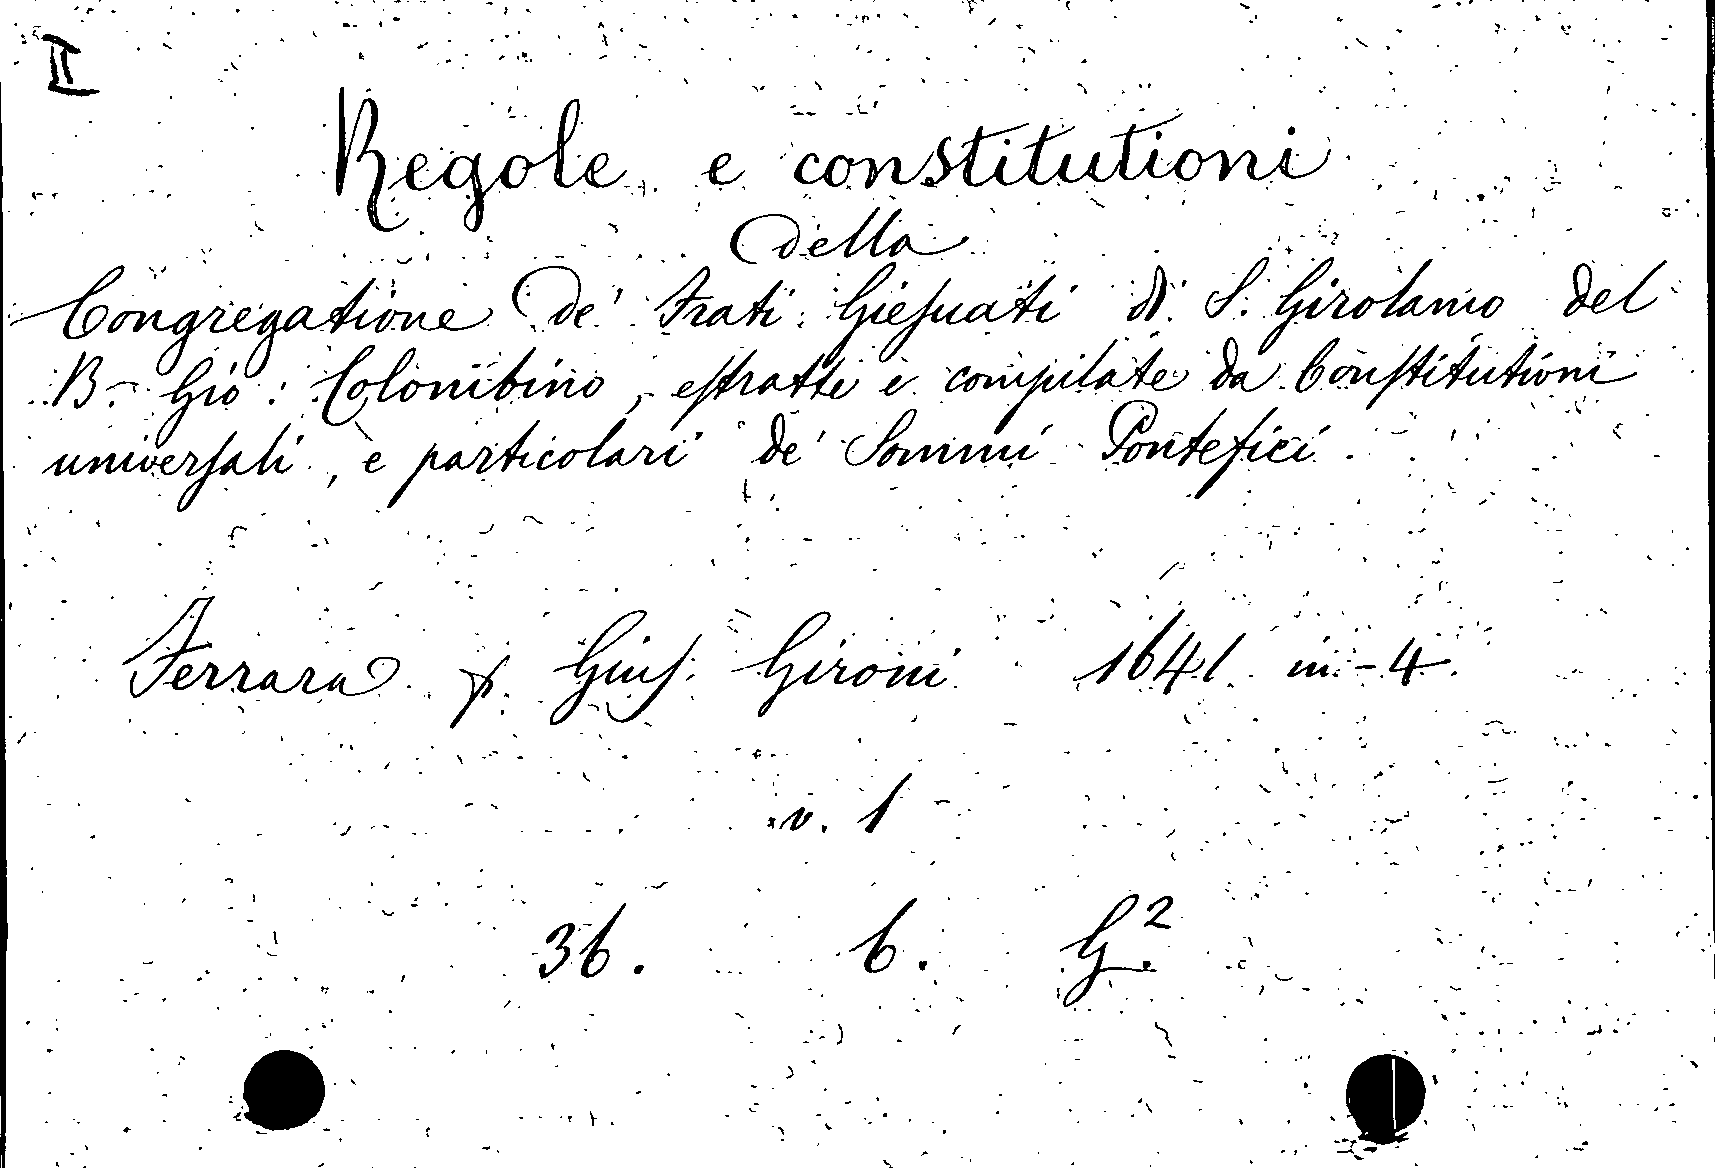 II
Regole e constitutioni
della
Congregatione de' Frati Giesuati di S. Girolamo del
B. Gio: Colombino, estratte e compilate da Constitutioni
universali, e particolari de' Sommi Pontefici.
Ferrara p. Gius. Gironi 1641 in-4.
v. 1
36. 6. G.²